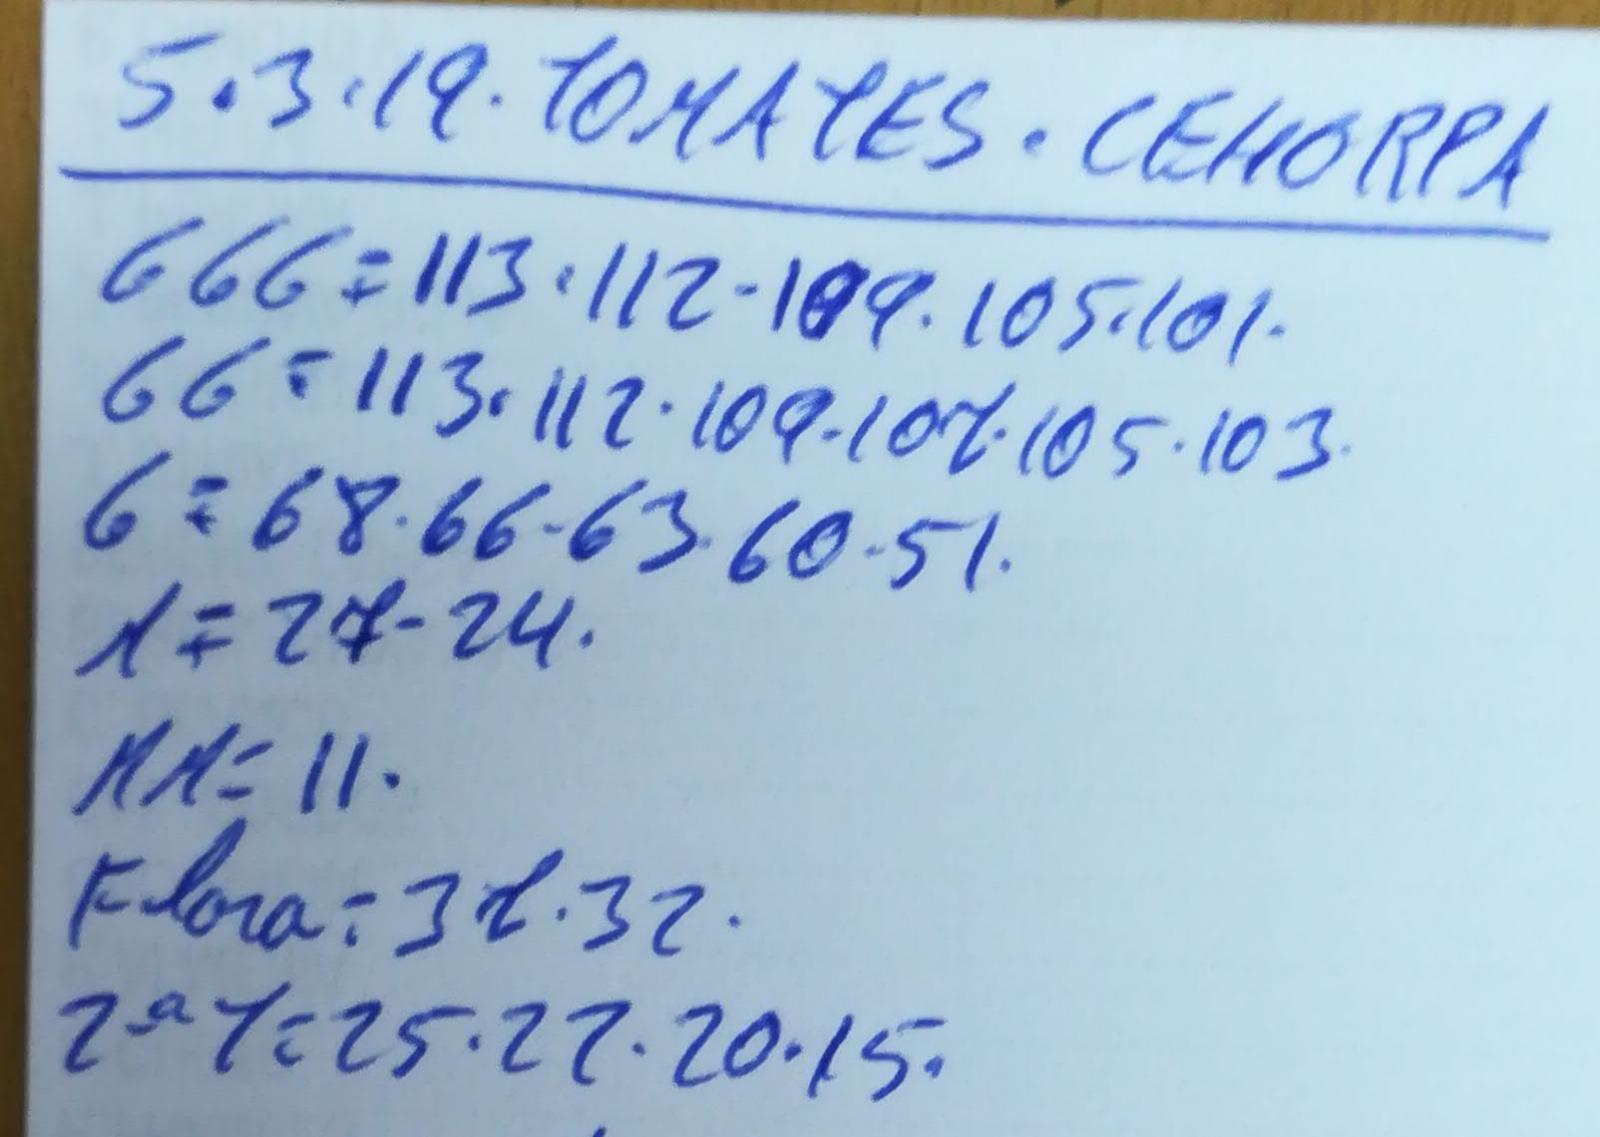 5.3.19. TOMATES. CEHORPA
GGG = 113.112-109.105.101.
GG = 113.112.109.107.105.103.
G = 68.66-63.60-51.
M = 27-24.
MM = 11.
Flora = 37.32.
2ª T = 25.22.20.15.